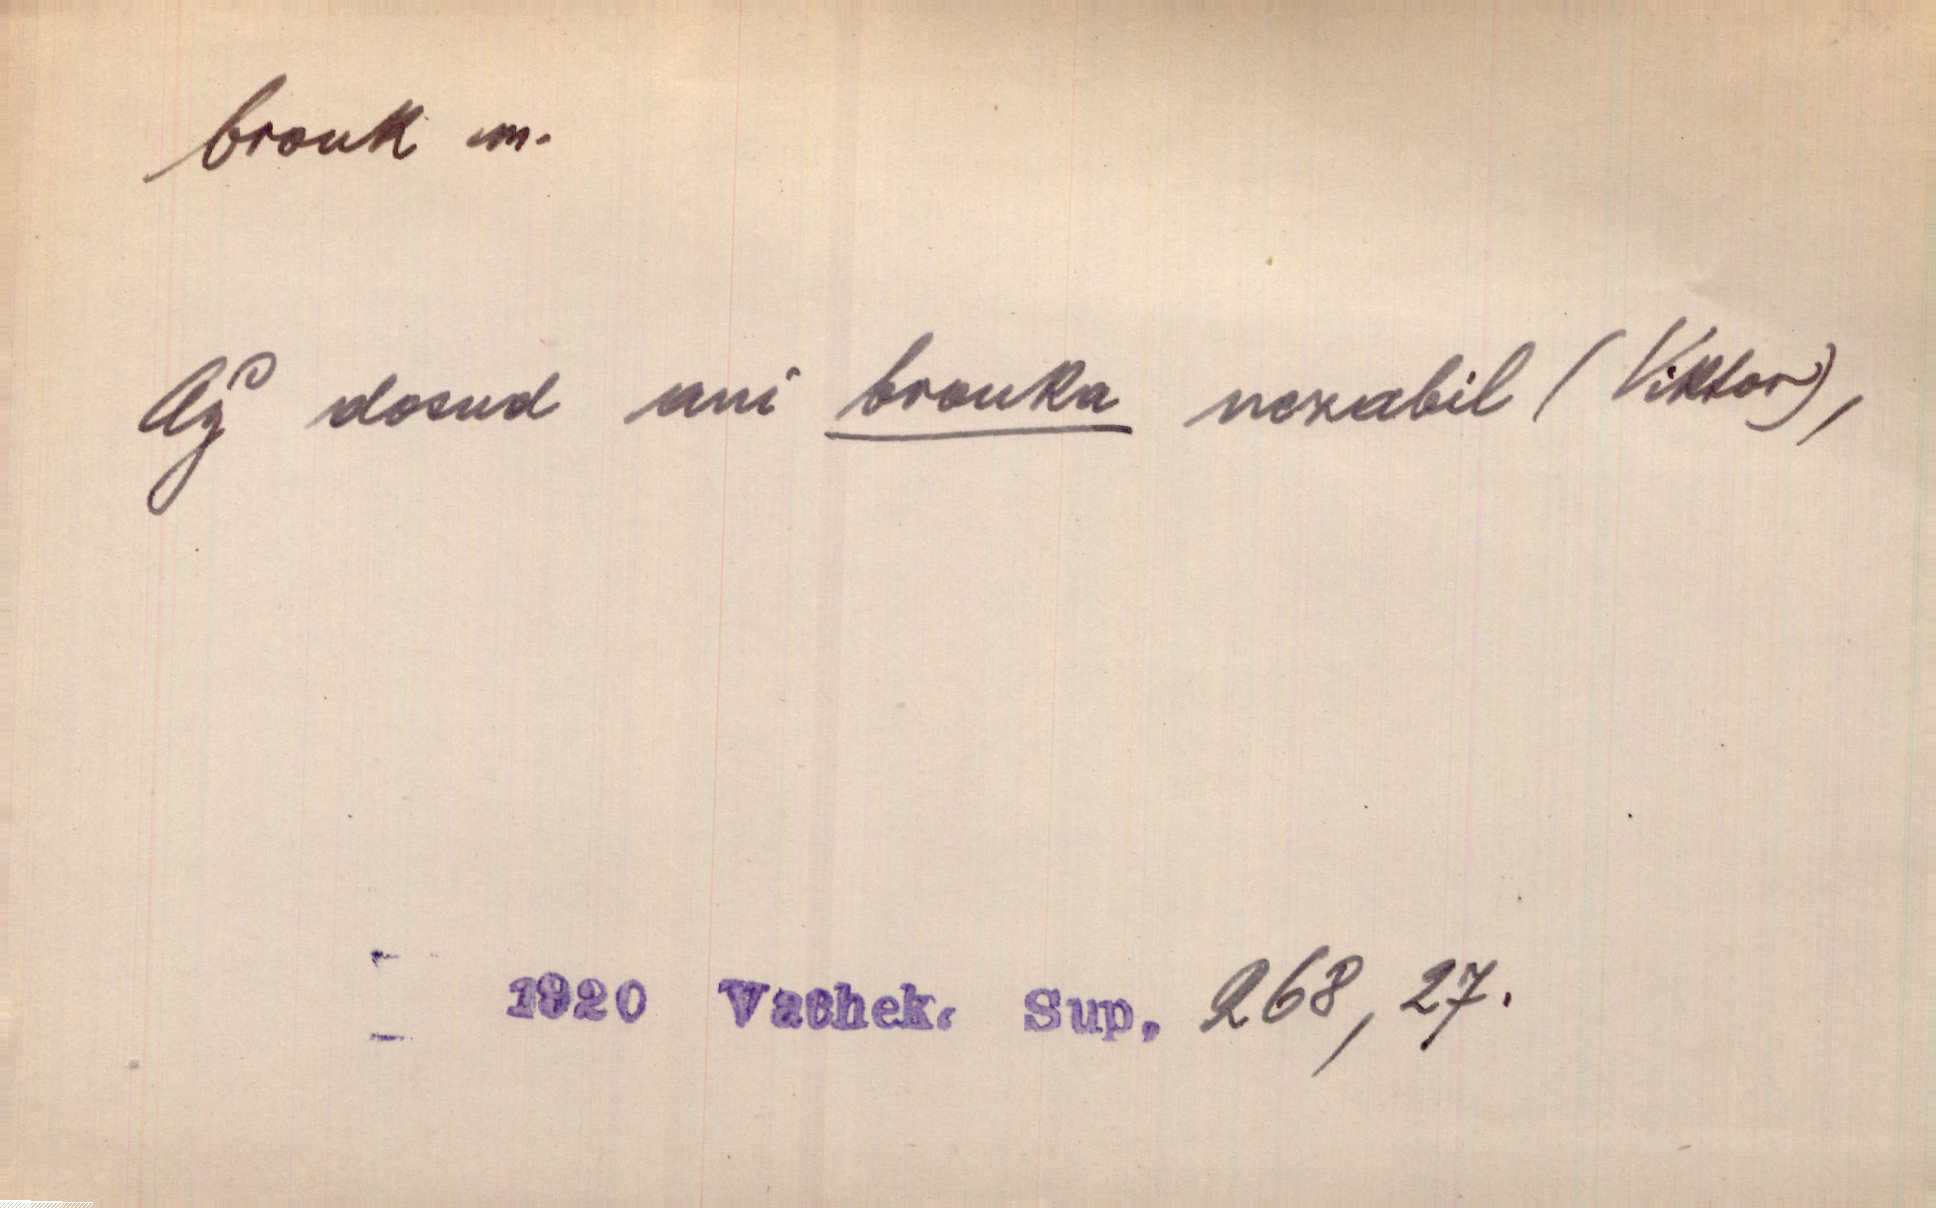 brouk m.
Až dosud ani brouka nezabil (Viktor),
1920 Vachek. Sup. 268, 27.